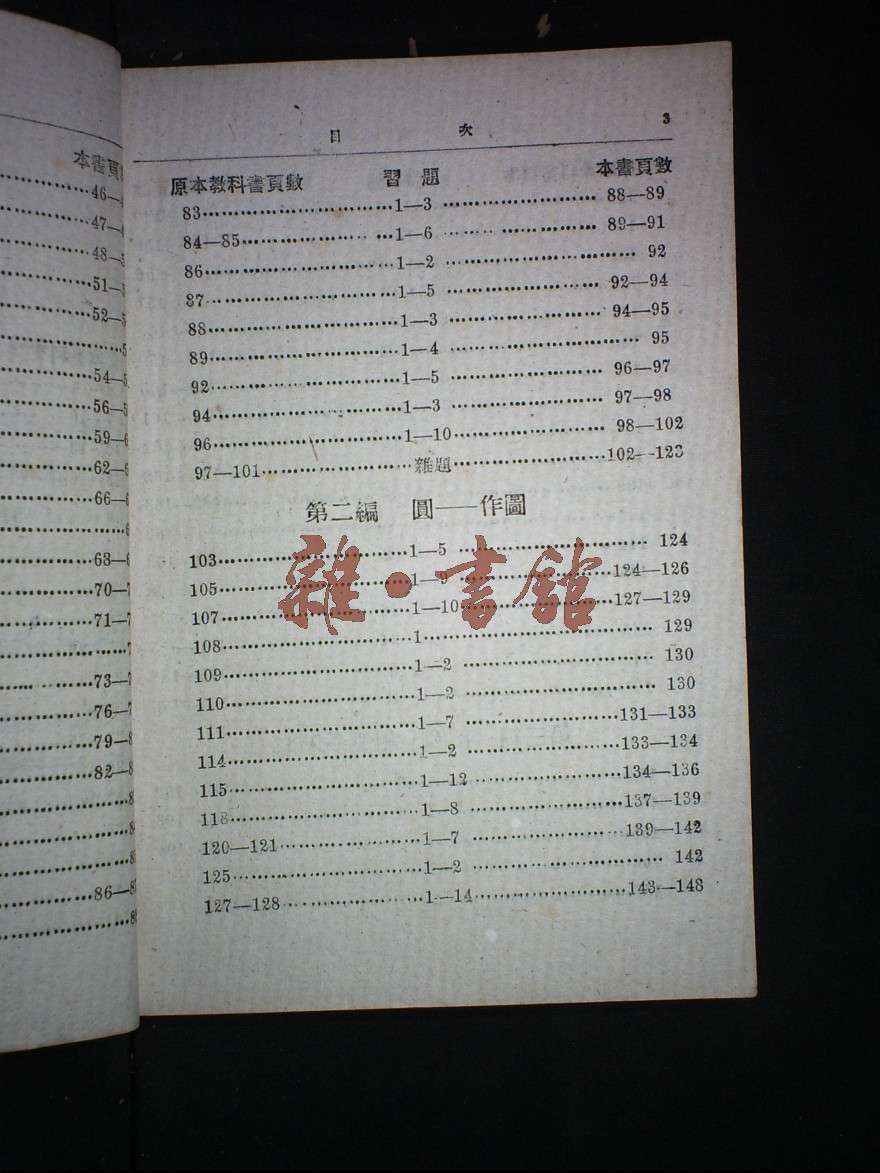 本書頁
46—
47—
48—
51—
52—
54—5
56—5
59—6
62—6
66—6
68—6
70—7
71—7
73—7
76—7
79—8
82—8
86—8
目 次 3
原本教科書頁數 習題 本書頁數
83……1—3……88—89
84—85……1—6……89—91
86……1—2……92
87……1—5……92—94
88……1—3……94—95
89……1—4……95
92……1—5……96—97
94……1—3……97—98
96……1—10……98—102
97—101……雜題……102—123
第二編 圓——作圖
103……1—5……124
105……1—9……124—126
107……1—10……127—129
108……1……129
109……1—2……130
110……1—2……130
111……1—7……131—133
114……1—2……133—134
115……1—12……134—136
118……1—8……137—139
120—121……1—7……139—142
125……1—2……142
127—128……1—14……143—148
雜·書館